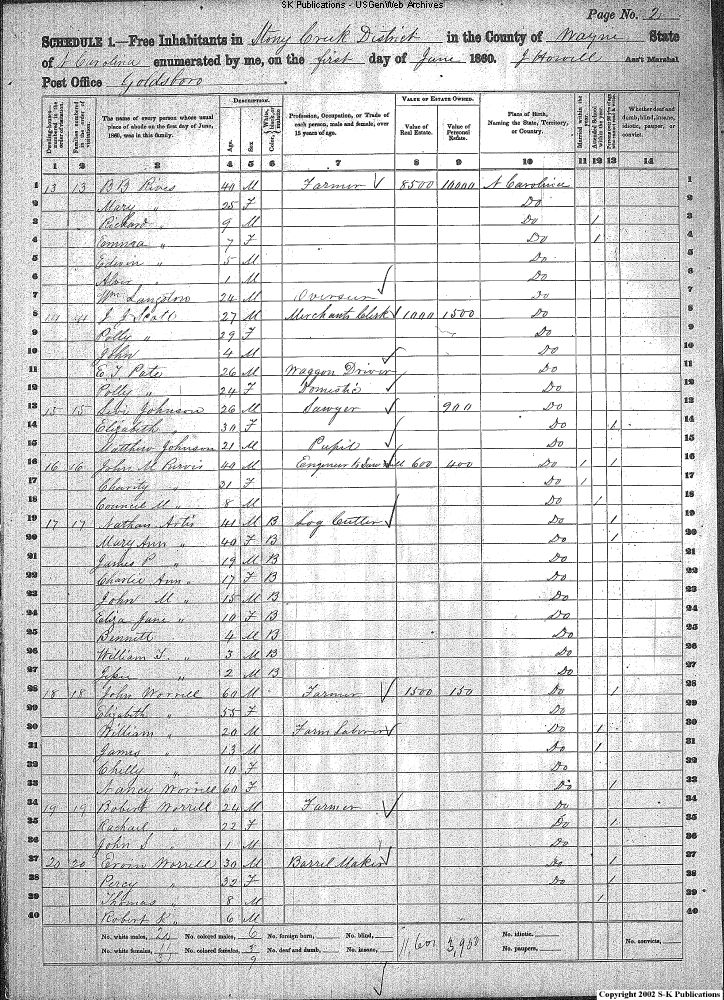 SK Publications - USGenWeb Archives
Page No. 2
SCHEDULE 1.—Free Inhabitants in Stony Creek District in the County of Wayne State
of N Carolina enumerated by me, on the first day of June 1860. J Howell Ass't Marshal
Post Office Goldsboro
Dwelling-houses numbered in the order of visitation.
Families numbered in the order of visitation.
The name of every person whose usual place of abode on the first day of June, 1860, was in this family.
DESCRIPTION.
Age.
Sex.
Color,
Profession, Occupation, or Trade of each person, male and female, over 15 years of age.
VALUE OF ESTATE OWNED.
Value of Real Estate.
Value of Personal Estate.
Place of Birth, Naming the State, Territory, or Country.
Married within the year.
Attended School within the year.
Whether deaf and dumb, blind, insane, idiotic, pauper, or convict.
1 2 3 4 5 6 7 8 9 10 11 12 13 14
1 13 13 B B Rives 40 M Farmer 8500 10000 N Carolina 1
2 Mary " 25 F Do 2
3 Richard " 9 M Do 1 3
4 " 7 F Do 1 4
5 Edwin " 5 M Do 5
6 " 1 M Do 6
7 Wm Langston 24 M Overseer Do 7
8 14 14 J J Scott 27 M Merchants Clerk 1000 1500 Do 8
9 Polly " 29 F Do 9
10 John " 4 M Do 10
11 E T Pate 26 M Waggon Driver Do 11
12 Polly " 24 F Domestic Do 12
13 15 15 Levi Johnson 26 M Sawyer 900 Do 13
14 Elizabeth " 30 F Do 1 14
15 Matthew Johnson 21 M Pupil Do 15
16 16 16 John M Purvis 40 M Engineer to Saw Mill 600 400 Do 1 1 16
17 Charity " 21 F Do 1 17
18 Council M " 8 M Do 1 18
19 17 17 Nathan Artis 41 M B Log Cutter Do 1 19
20 Mary Ann " 40 F B Do 1 20
21 James P " 19 M B Do 21
22 Charlie Ann " 17 F B Do 22
23 John M " 15 M B Do 23
24 Eliza Jane " 10 F B Do 24
25 Bennett 4 M B Do 25
26 William T. " 3 M B Do 26
27 " 2 M B Do 27
28 18 18 John Worrill 60 M Farmer 1500 150 Do 1 28
29 Elizabeth " 55 F Do 29
30 William " 20 M Farm Laborer Do 1 30
31 James " 13 M Do 1 31
32 Chilly " 10 F Do 32
33 Nancy Worrill 60 F Do 1 33
34 19 19 Robert Worrill 24 M Farmer Do 34
35 Rachael " 22 F Do 1 35
36 John S " 1 M Do 36
37 20 20 Ervin Worrill 30 M Barrel Maker Do 1 37
38 Percy " 32 F Do 1 38
39 Thomas " 8 M 1 39
40 Robert K " 6 M 40
No. white males, No. colored males, 6 No. foreign born, No. blind, No. idiotic,
No. white females, 11 No. colored females, 3 No. deaf and dumb, No. insane, No. paupers, No. convicts,
9
Copyright 2002 S-K Publications